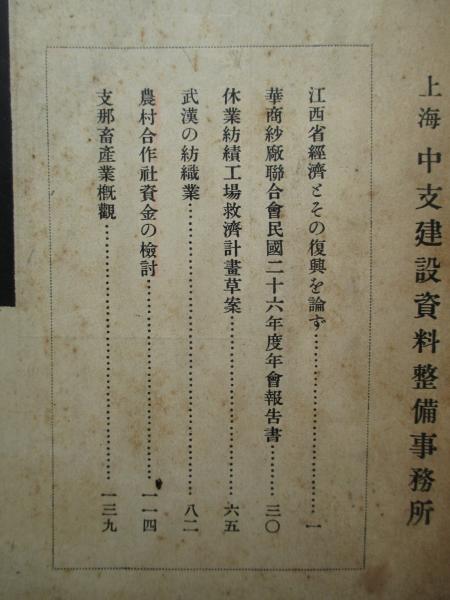 上海 中支建設資料整備事務所
江西省經濟とその復興を論ず……………………一
華商紗廠聯合會民國二十六年度年會報告書………三〇
休業紡績工場救濟計畫草案……………………六五
武漢の紡織業……………………………………八二
農村合作社資金の檢討…………………………一一四
支那畜產業槪觀…………………………………一三九